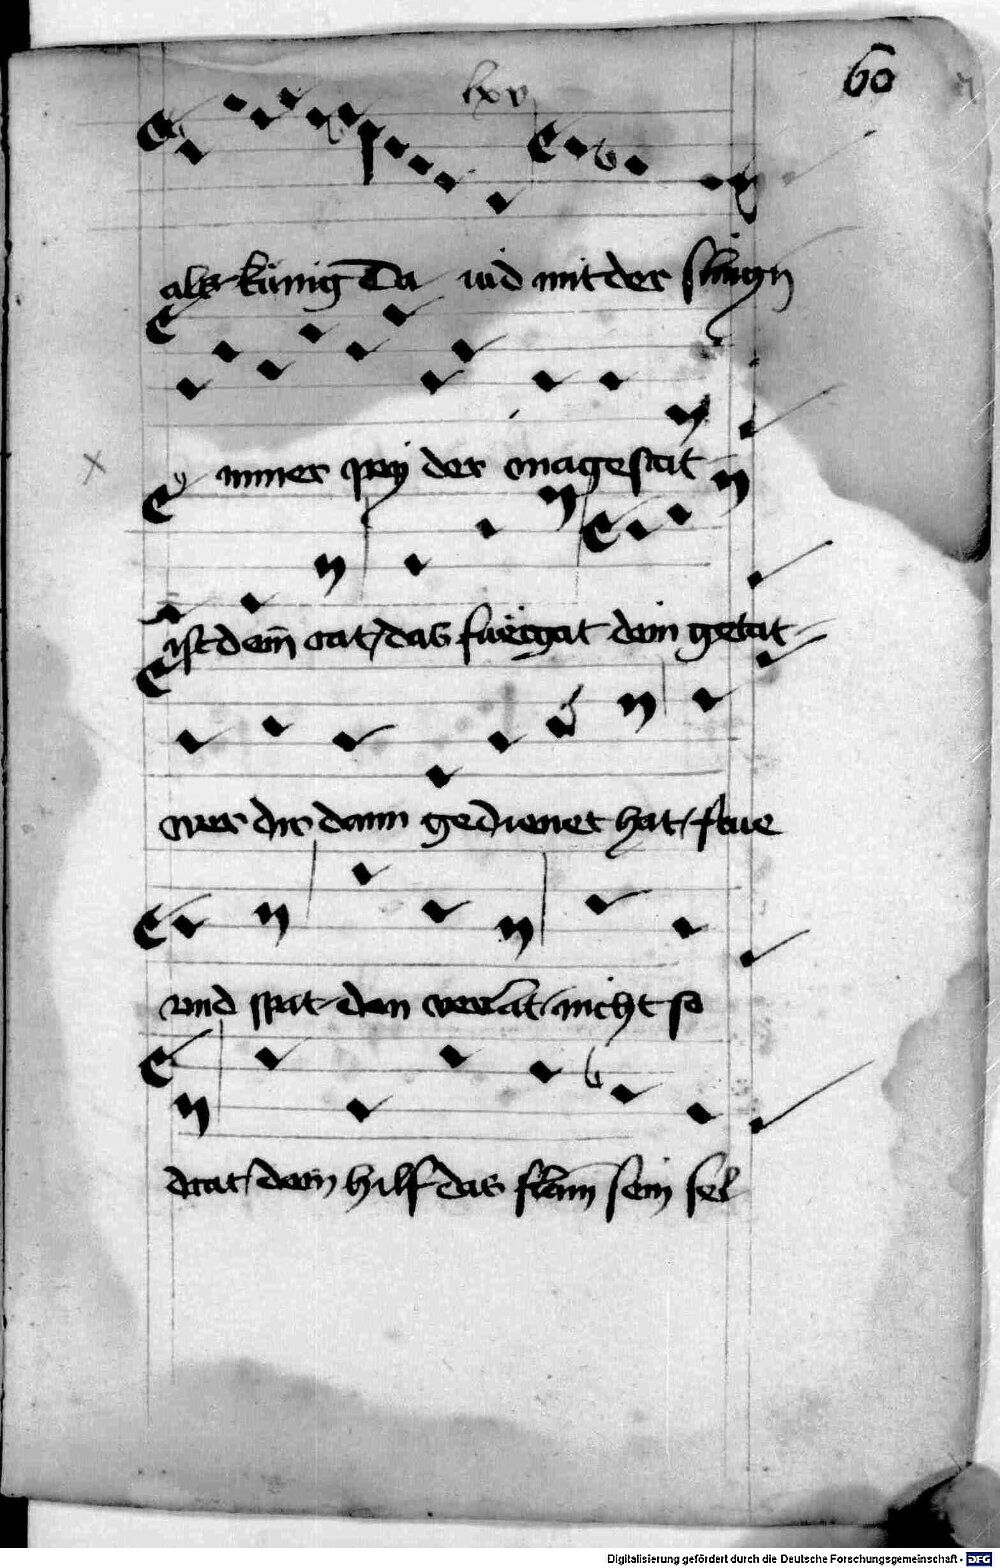 lxv
60
als künig Da uid mit der slingn
ymmer pey der magestat
ist dein rat / das fürgat dein getat
wer dir dann gedienet hat / frue
vnd spat den verlat nicht so
drat / dem hilf das sein sel
Digitalisierung gefördert durch die Deutsche Forschungsgemeinschaft - DFG